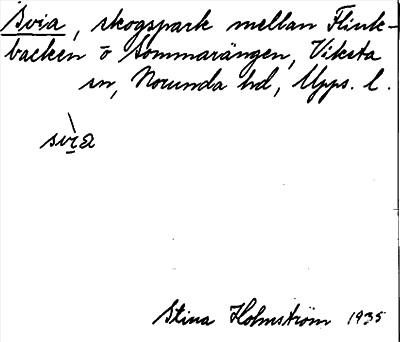 Svia, skogspark mellan Flink-
backen o Sommarängen, Viksta
sn, Norunda hd, Upps. l.
svìa
Stina Holmström 1935